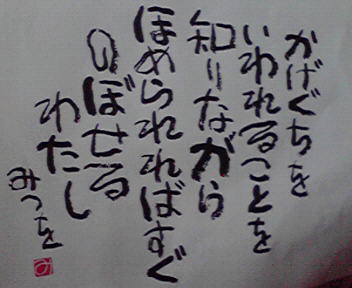 かげぐちを
いわれることを
知りながら
ほめられればすぐ
のぼせる
わたし
みつを
み